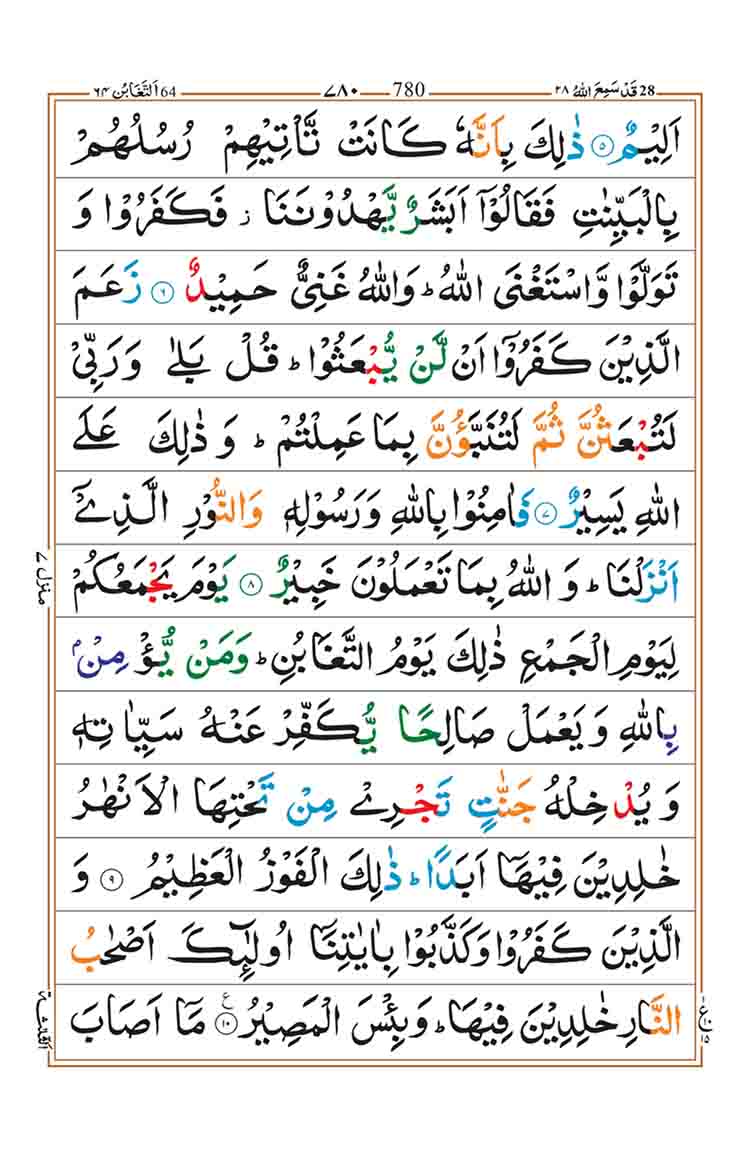 28 قَدْ سَمِعَ اللّٰهُ ٢٨
780 ٧٨٠
64 اَلتَّغَابُن ٦٤
اَلِيْمٌ ۝٥ ذٰلِكَ بِاَنَّهٗ كَانَتْ تَّاْتِيْهِمْ رُسُلُهُمْ
بِالْبَيِّنٰتِ فَقَالُوْۤا اَبَشَرٌ يَّهْدُوْنَنَا ز فَكَفَرُوْا وَ
تَوَلَّوْا وَّاسْتَغْنَى اللّٰهُ ؕ وَاللّٰهُ غَنِىٌّ حَمِيْدٌ ۝٦ زَعَمَ
الَّذِيْنَ كَفَرُوْۤا اَنْ لَّنْ يُّبْعَثُوْا ؕ قُلْ بَلٰى وَرَبِّىْ
لَتُبْعَثُنَّ ثُمَّ لَتُنَبَّؤُنَّ بِمَا عَمِلْتُمْ ؕ وَ ذٰلِكَ عَلَى
اللّٰهِ يَسِيْرٌ ۝٧ فَاٰمِنُوْا بِاللّٰهِ وَرَسُوْلِهٖ وَالنُّوْرِ الَّذِىْۤ
اَنْزَلْنَا ؕ وَ اللّٰهُ بِمَا تَعْمَلُوْنَ خَبِيْرٌ ۝٨ يَوْمَ يَجْمَعُكُمْ
لِيَوْمِ الْجَمْعِ ذٰلِكَ يَوْمُ التَّغَابُنِ ؕ وَمَنْ يُّؤْمِنْۢ
بِاللّٰهِ وَيَعْمَلْ صَالِحًا يُّكَفِّرْ عَنْهُ سَيِّاٰتِهٖ
وَ يُدْخِلْهُ جَنّٰتٍ تَجْرِىْ مِنْ تَحْتِهَا الْاَنْهٰرُ
خٰلِدِيْنَ فِيْهَاۤ اَبَدًا ؕ ذٰلِكَ الْفَوْزُ الْعَظِيْمُ ۝٩ وَ
الَّذِيْنَ كَفَرُوْا وَكَذَّبُوْا بِاٰيٰتِنَاۤ اُولٰٓئِكَ اَصْحٰبُ
النَّارِ خٰلِدِيْنَ فِيْهَا ؕ وَبِئْسَ الْمَصِيْرُ ۝١٠ ع مَاۤ اَصَابَ
منزل ٧
الثلثة
ع